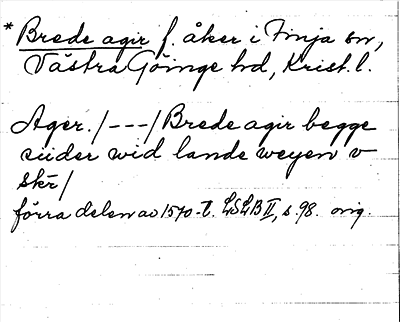 * Brede agir f. åker i Finja sn,
Västra Göinge hd, Krist. l.
Ager. /---/ Brede agir begge
siider wid lande weyen v
skr /
förra delen av 1570-t. LSLB II, s. 98. orig.